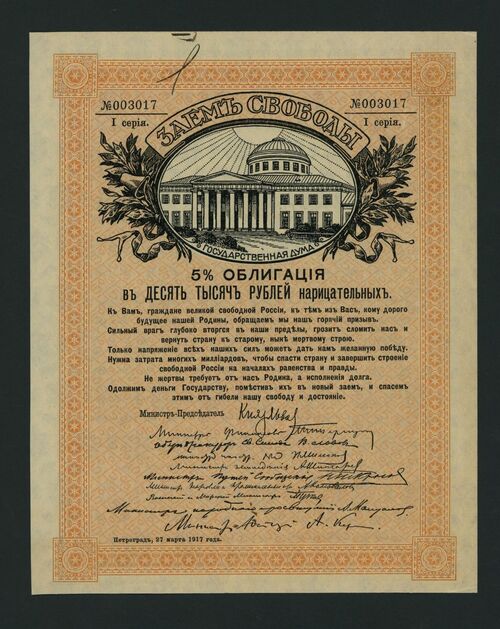 №003017 №003017
I серія. I серія.
ЗАЕМЪ СВОБОДЫ
ГОСУДАРСТВЕННАЯ ДУМА
5% ОБЛИГАЦІЯ
въ ДЕСЯТЬ ТЫСЯЧЪ РУБЛЕЙ нарицательныхъ.
Къ Вамъ, граждане великой свободной Россіи, къ тѣмъ изъ Васъ, кому дорого
будущее нашей Родины, обращаемъ мы нашъ горячій призывъ.
Сильный врагъ глубоко вторгся въ наши предѣлы, грозитъ сломить насъ и
вернуть страну къ старому, нынѣ мертвому строю.
Только напряженіе всѣхъ нашихъ силъ можетъ дать намъ желанную побѣду.
Нужна затрата многихъ милліардовъ, чтобы спасти страну и завершить строеніе
свободной Россіи на началахъ равенства и правды.
Не жертвы требуетъ отъ насъ Родина, а исполненія долга.
Одолжимъ деньги Государству, помѣстивъ ихъ въ новый заемъ, и спасемъ
этимъ отъ гибели нашу свободу и достояніе.
Министръ-Предсѣдатель Князь Львовъ
Министръ Финансовъ
Министръ земледѣлія
Министръ Путей Сообщенія
Военный и Морской Министръ
Министръ народнаго просвѣщенія
Министръ Юстиціи А. Кер
Петроградъ, 27 марта 1917 года.